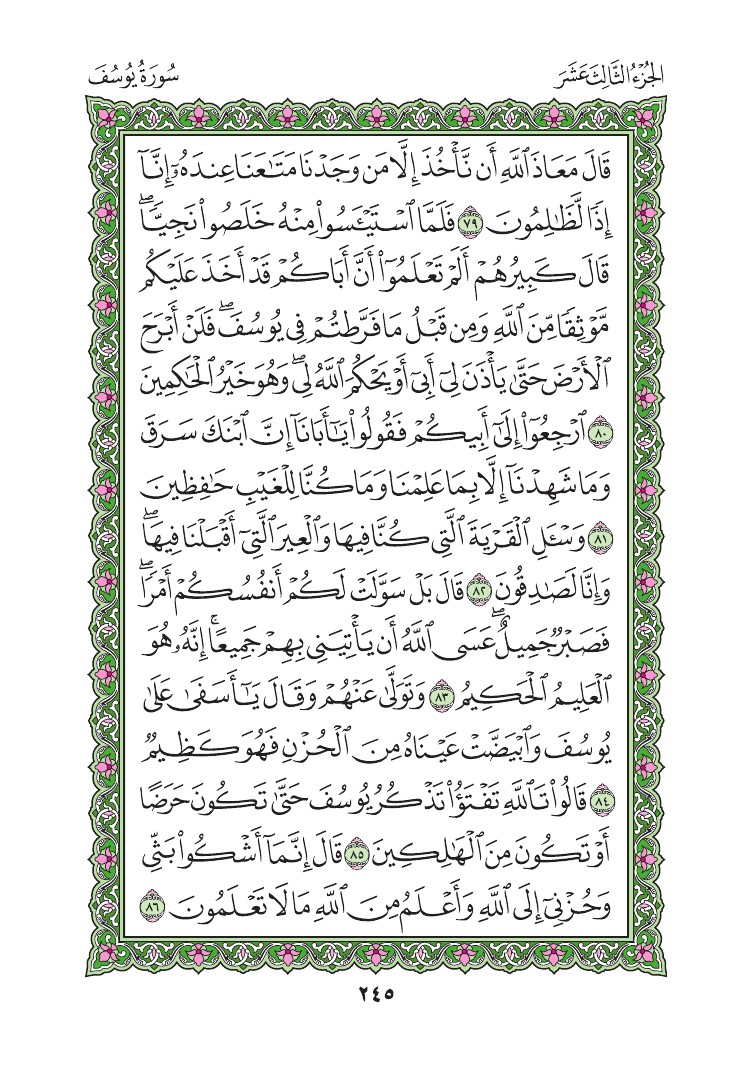 الجُزْءُ الثَّالِثَ عَشَرَ
سُورَةُ يُوسُفَ
قَالَ مَعَاذَ ٱللَّهِ أَن نَّأْخُذَ إِلَّا مَن وَجَدْنَا مَتَـٰعَنَا عِندَهُۥٓ إِنَّآ
إِذًا لَّظَـٰلِمُونَ ٧٩ فَلَمَّا ٱسْتَيْـَٔسُوا۟ مِنْهُ خَلَصُوا۟ نَجِيًّاۖ
قَالَ كَبِيرُهُمْ أَلَمْ تَعْلَمُوٓا۟ أَنَّ أَبَاكُمْ قَدْ أَخَذَ عَلَيْكُم
مَّوْثِقًا مِّنَ ٱللَّهِ وَمِن قَبْلُ مَا فَرَّطتُمْ فِى يُوسُفَۖ فَلَنْ أَبْرَحَ
ٱلْأَرْضَ حَتَّىٰ يَأْذَنَ لِىٓ أَبِىٓ أَوْ يَحْكُمَ ٱللَّهُ لِىۖ وَهُوَ خَيْرُ ٱلْحَـٰكِمِينَ
٨٠ ٱرْجِعُوٓا۟ إِلَىٰٓ أَبِيكُمْ فَقُولُوا۟ يَـٰٓأَبَانَآ إِنَّ ٱبْنَكَ سَرَقَ
وَمَا شَهِدْنَآ إِلَّا بِمَا عَلِمْنَا وَمَا كُنَّا لِلْغَيْبِ حَـٰفِظِينَ
٨١ وَسْـَٔلِ ٱلْقَرْيَةَ ٱلَّتِى كُنَّا فِيهَا وَٱلْعِيرَ ٱلَّتِىٓ أَقْبَلْنَا فِيهَاۖ
وَإِنَّا لَصَـٰدِقُونَ ٨٢ قَالَ بَلْ سَوَّلَتْ لَكُمْ أَنفُسُكُمْ أَمْرًاۖ
فَصَبْرٌ جَمِيلٌۖ عَسَى ٱللَّهُ أَن يَأْتِيَنِى بِهِمْ جَمِيعًاۚ إِنَّهُۥ هُوَ
ٱلْعَلِيمُ ٱلْحَكِيمُ ٨٣ وَتَوَلَّىٰ عَنْهُمْ وَقَالَ يَـٰٓأَسَفَىٰ عَلَىٰ
يُوسُفَ وَٱبْيَضَّتْ عَيْنَاهُ مِنَ ٱلْحُزْنِ فَهُوَ كَظِيمٌ
٨٤ قَالُوا۟ تَٱللَّهِ تَفْتَؤُا۟ تَذْكُرُ يُوسُفَ حَتَّىٰ تَكُونَ حَرَضًا
أَوْ تَكُونَ مِنَ ٱلْهَـٰلِكِينَ ٨٥ قَالَ إِنَّمَآ أَشْكُوا۟ بَثِّى
وَحُزْنِىٓ إِلَى ٱللَّهِ وَأَعْلَمُ مِنَ ٱللَّهِ مَا لَا تَعْلَمُونَ ٨٦
٢٤٥